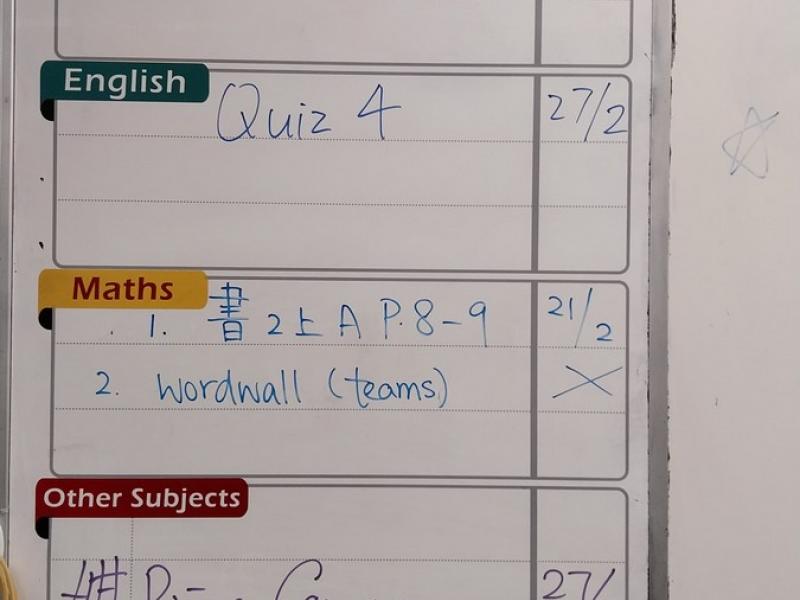 English
Quiz 4 27/2
Maths
1. 書 2上A P.8-9 21/2
2. wordwall (teams) ×
Other Subjects
27/